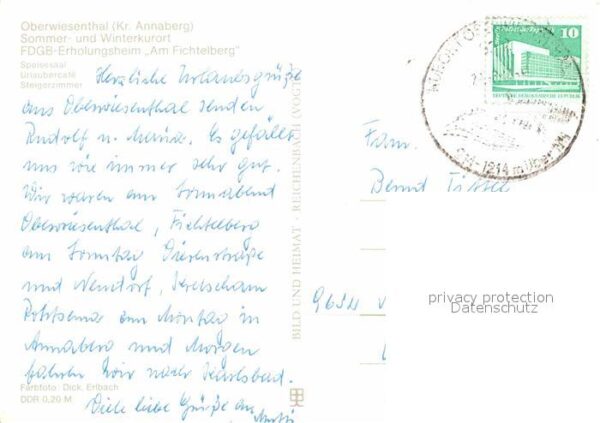 Oberwiesenthal (Kr. Annaberg)
Sommer- und Winterkurort
FDGB-Erholungsheim „Am Fichtelberg"
Speisesaal
Urlaubercafé
Steigerzimmer
Herzliche Urlaubsgrüße
aus Oberwiesenthal senden
Rudolf u. Maria. Es gefällt
uns wie immer sehr gut.
Wir waren am Sonnabend
Oberwiesenthal, Fichtelberg
am Sonntag
und Neudorf,
am Montag in
Annaberg und Morgen
fahren wir nach Karlsbad.
Viele liebe Grüße an
Farbfoto: Dick, Erlbach
DDR 0,20 M
BILD UND HEIMAT · REICHENBACH (VOGTL
10
DEUTSCHE DEMOKRATISCHE REPUBLIK
1214 m über
Fam.
Bernd
privacy protection
Datenschutz